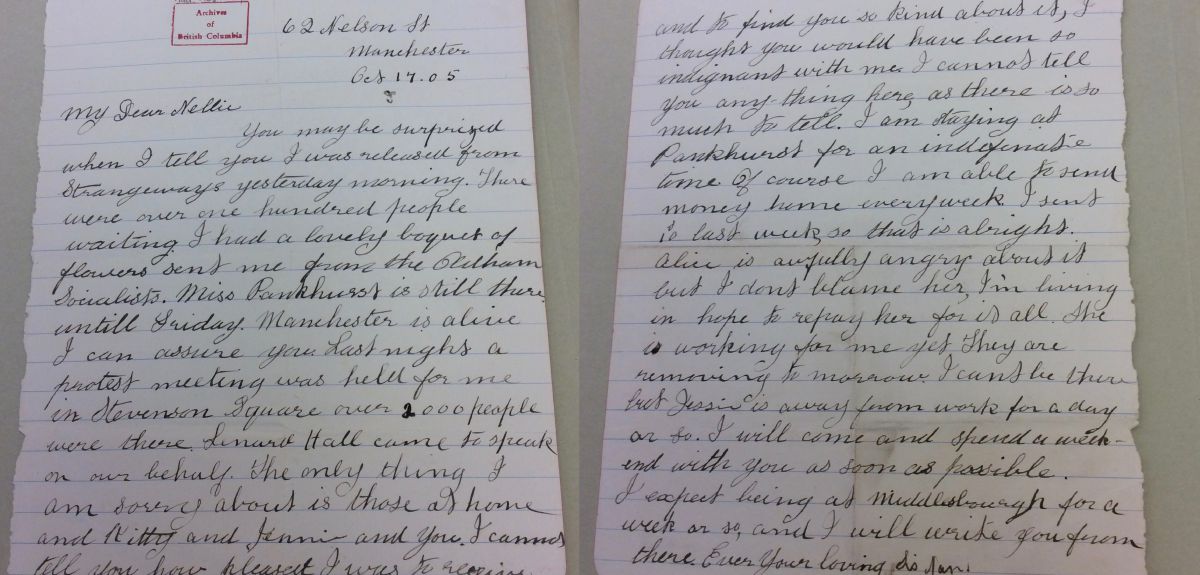 Archives
of
British Columbia
62 Nelson St
Manchester
Oct 17.05
My Dear Nellie
You may be surprized
when I tell you I was released from
Strangeways yesterday morning. There
were over one hundred people
waiting. I had a lovely boquet of
flowers sent me from the Oldham
Socialists. Miss Pankhurst is still there
untill Friday. Manchester is alive
I can assure you. Last night a
protest meeting was held for me
in Stevenson Square over 2000 people
were there. Linard Hall came to speak
on our behalf. The only thing I
am sorry about is those at home
and Kitty and Jennie and you. I cannot
tell you how pleased I was to receive
and to find you so kind about it, I
thought you would have been so
indignant with me. I cannot tell
you any thing here, as there is so
much to tell. I am staying at
Pankhurst for an indefinate
time. Of course I am able to send
money home everyweek. I sent
last week, so that is alright.
Alice is awfully angry about it
but I dont blame her, I'm living
in hope to repay her for it all. She
is working for me yet They are
removing to morrow. I cant be there
but Jessie is away from work for a day
or so. I will come and spend a week-
end with you as soon as possible.
I expect being at Middlesbourgh for a
week or so, and I will write you from
there. Ever Your loving Sis Nan.